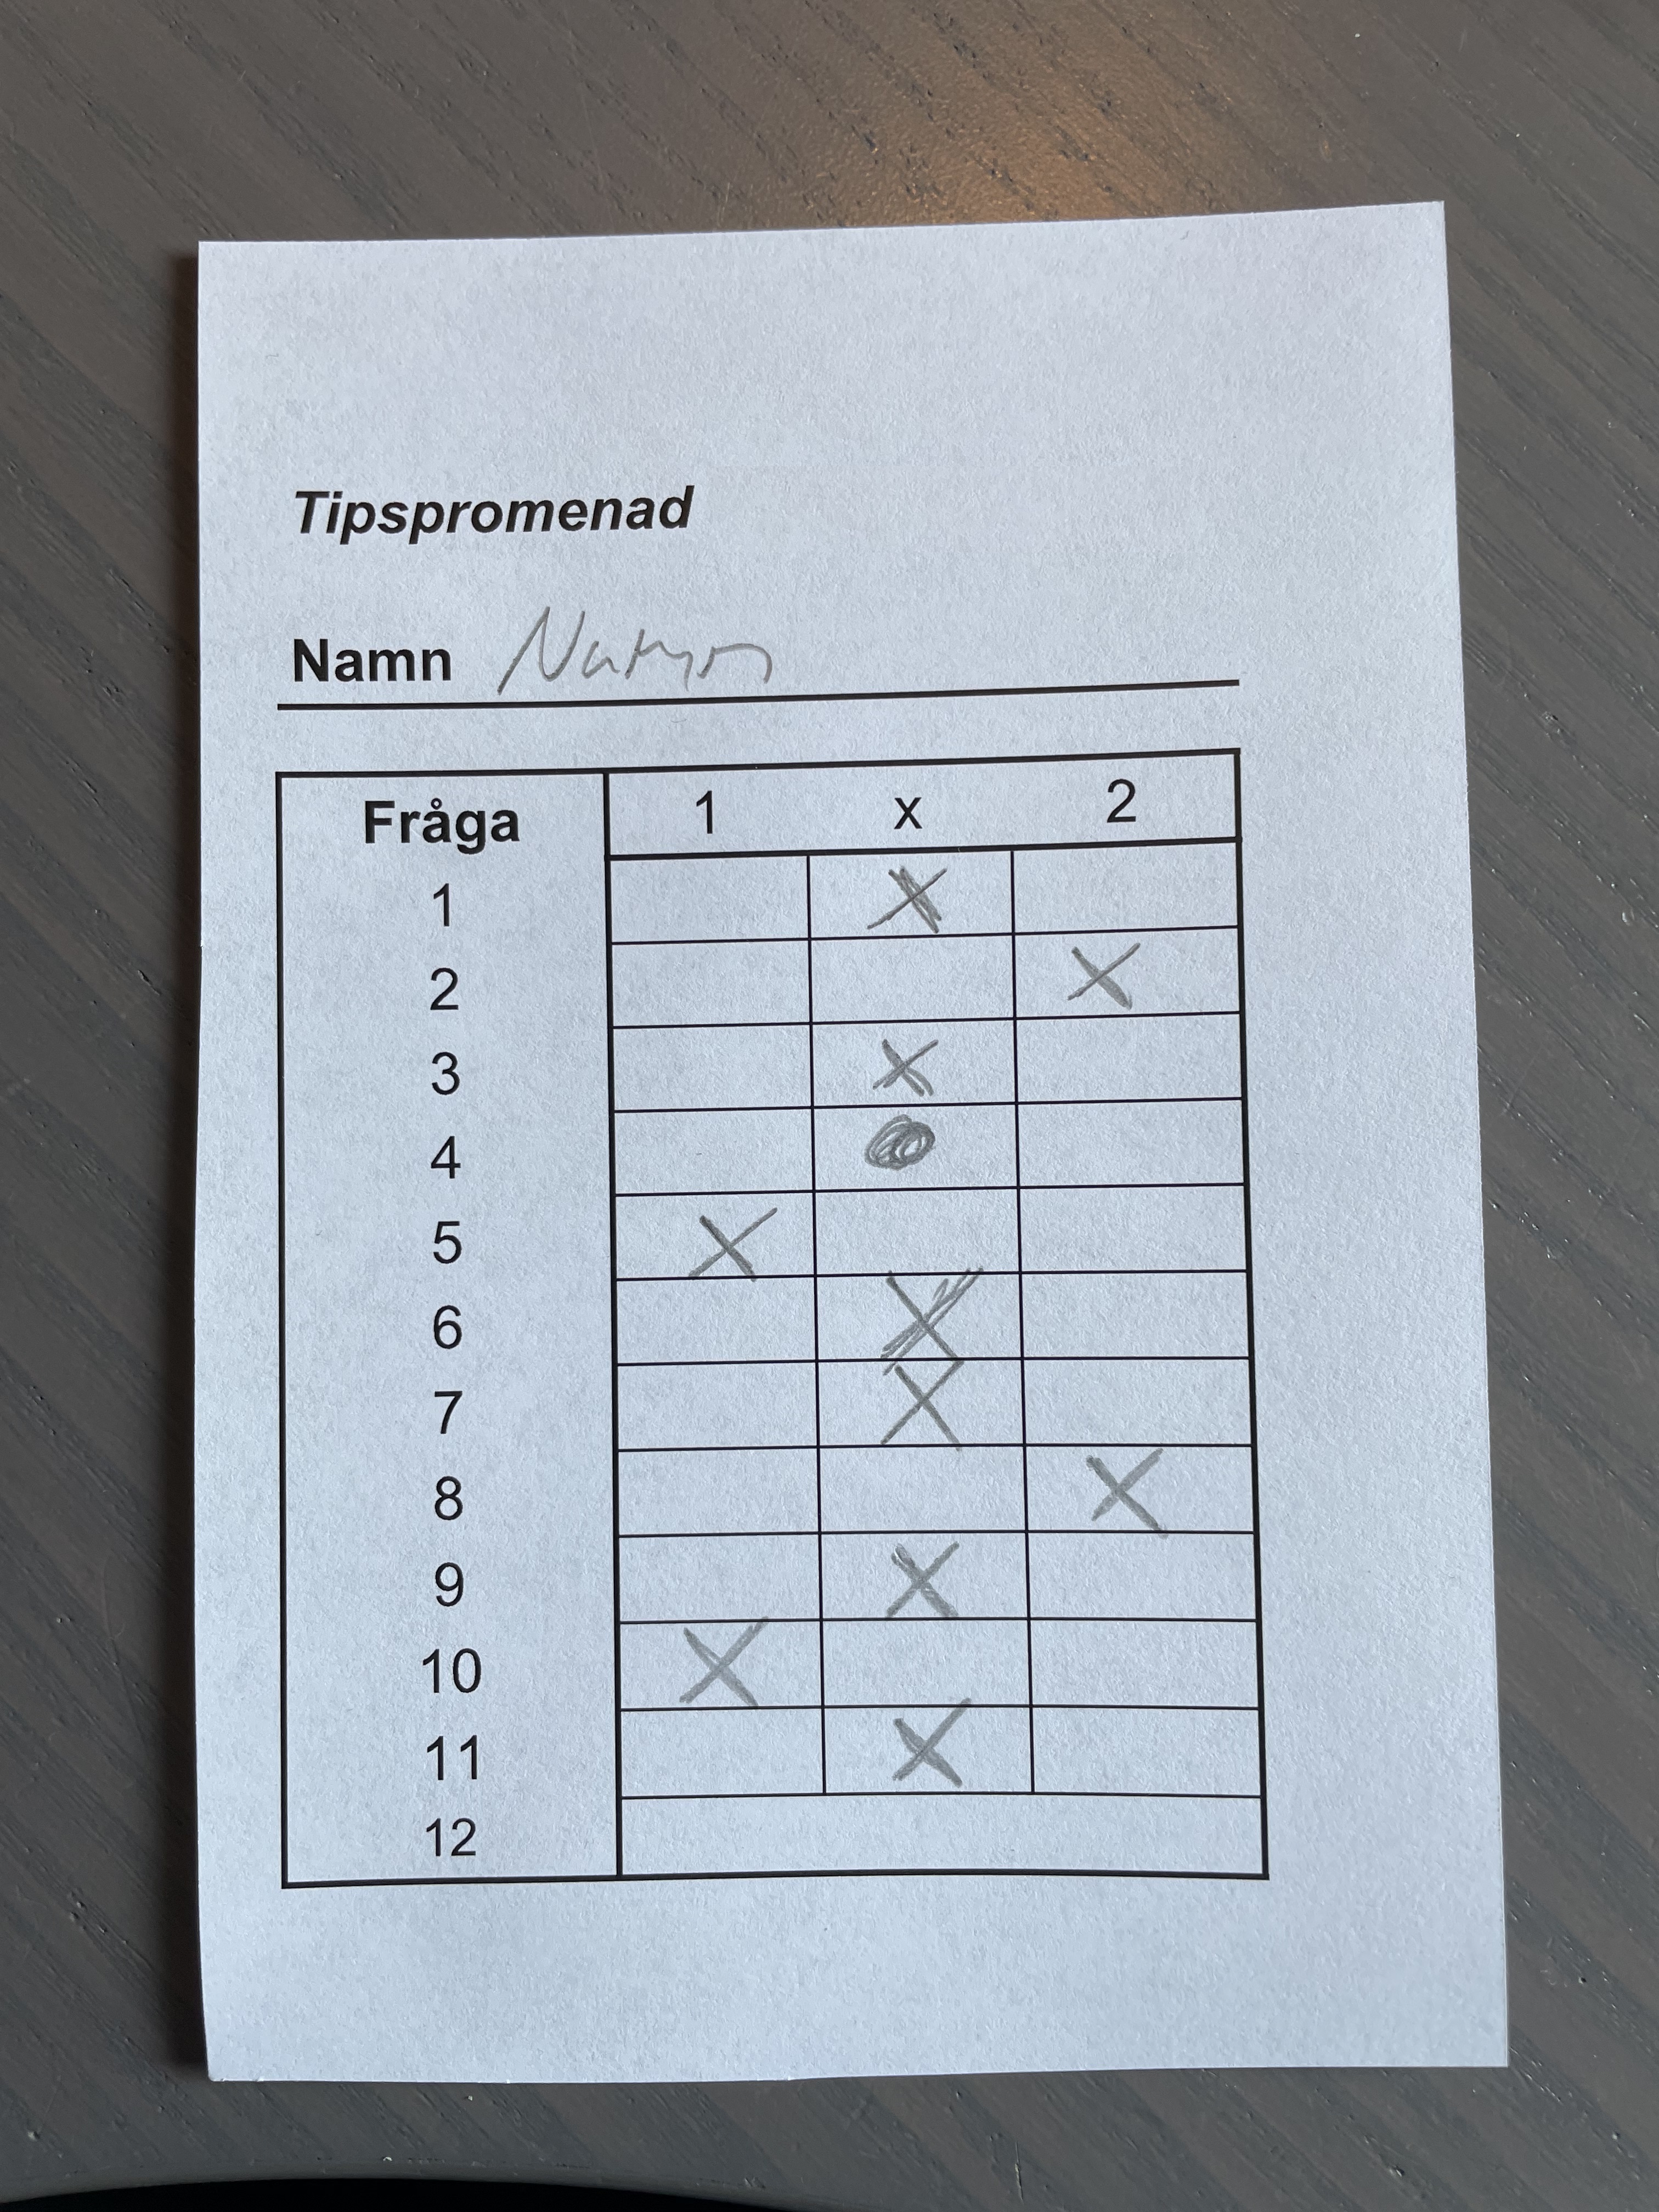 Tipspromenad
Namn
Fråga 1 x 2
1 X
2 X
3 X
4
5 X
6 X
7 X
8 X
9 X
10 X
11 X
12